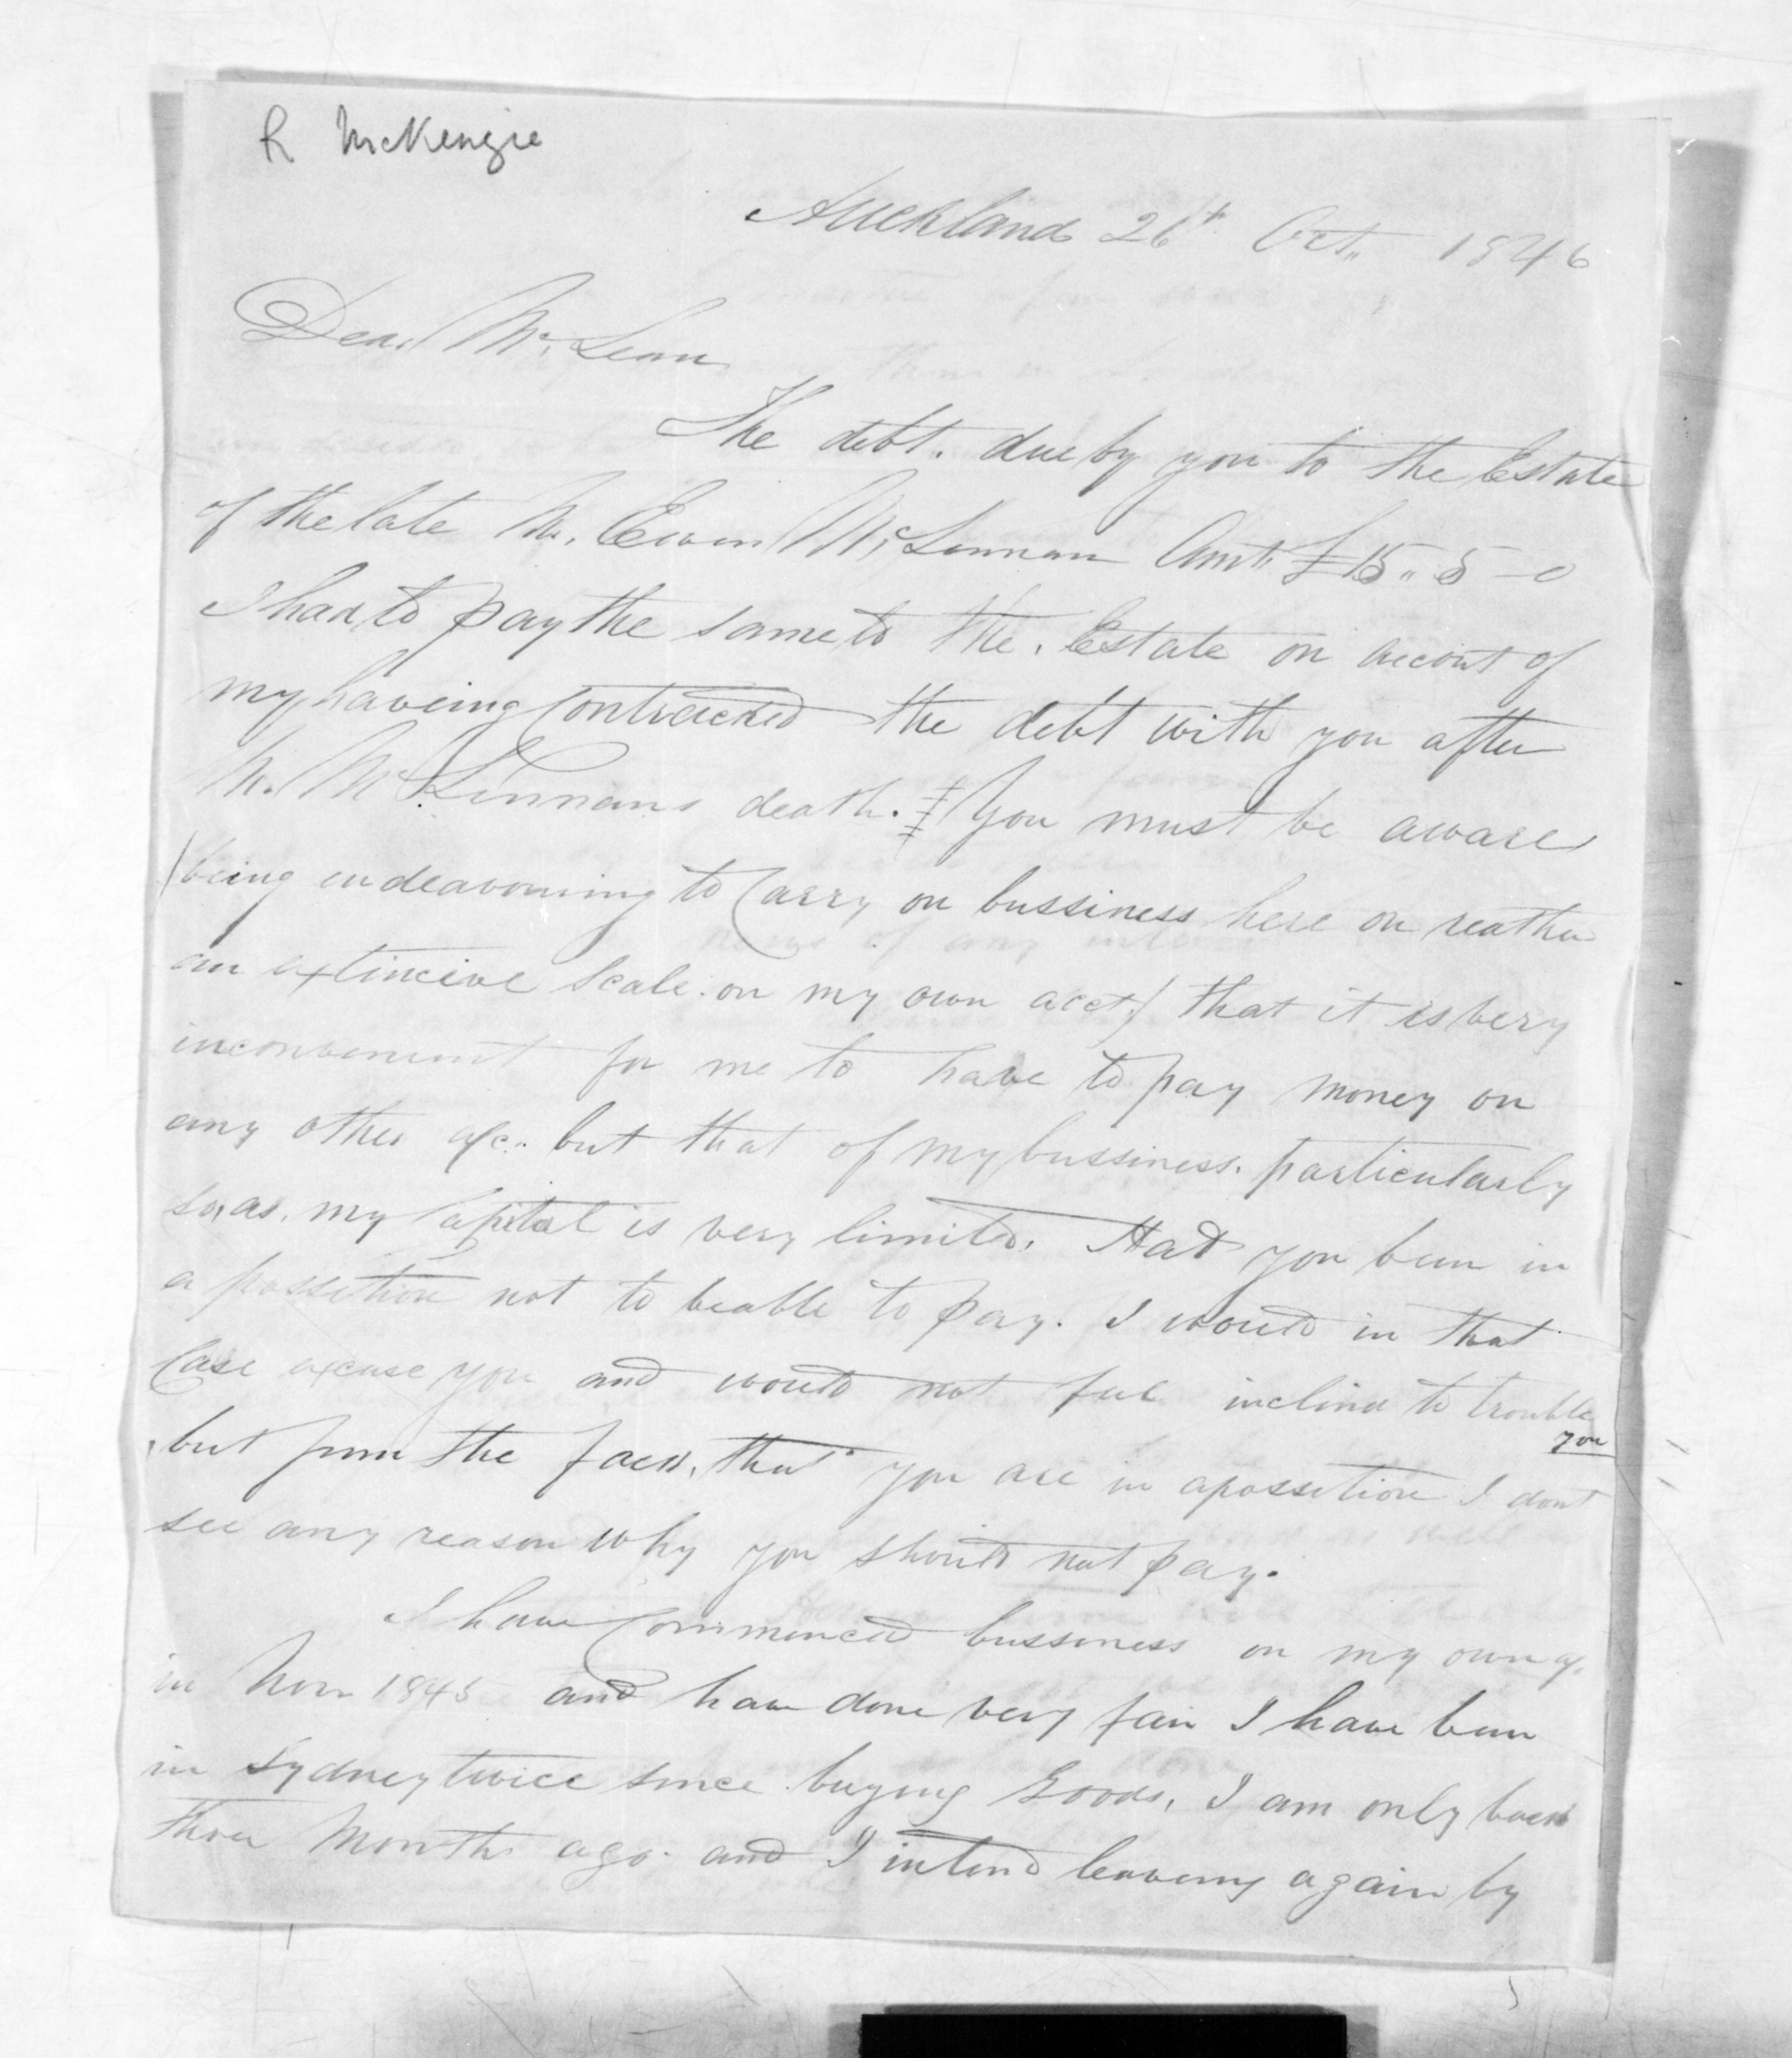 R McKenzie
Auckland 26th Oct. 1846
Dear McLean
The debt. due by you to the Estate
of the late Mr. Ewen McLennan Amt. £15.. 5 - 0
I had to pay the same to the. Estate on account of
my haveing Contracked the debt with you after
Mr. McLennans death. You must be aware
(being endeavouring to Carry on bussiness here on reather
an extincive scale. on my own acct.) that it is very
inconvenient for me to have to pay money on
any other a/c.. but that of my bussiness. particularly
so, as. my Capital is very limited. Had you been in
a possetion not to be able to pay. I would in that
Case excuse you and would not feel inclined to trouble
you
but from the fact, that you are in a possetion I dont
see any reason why you should not pay.
I have Commenced bussiness on my own a/c
in Novr 1845 and have done very fair I have been
in Sydney twice since buying Goods, I am only back
three Months ago. and I intend leaveing again by